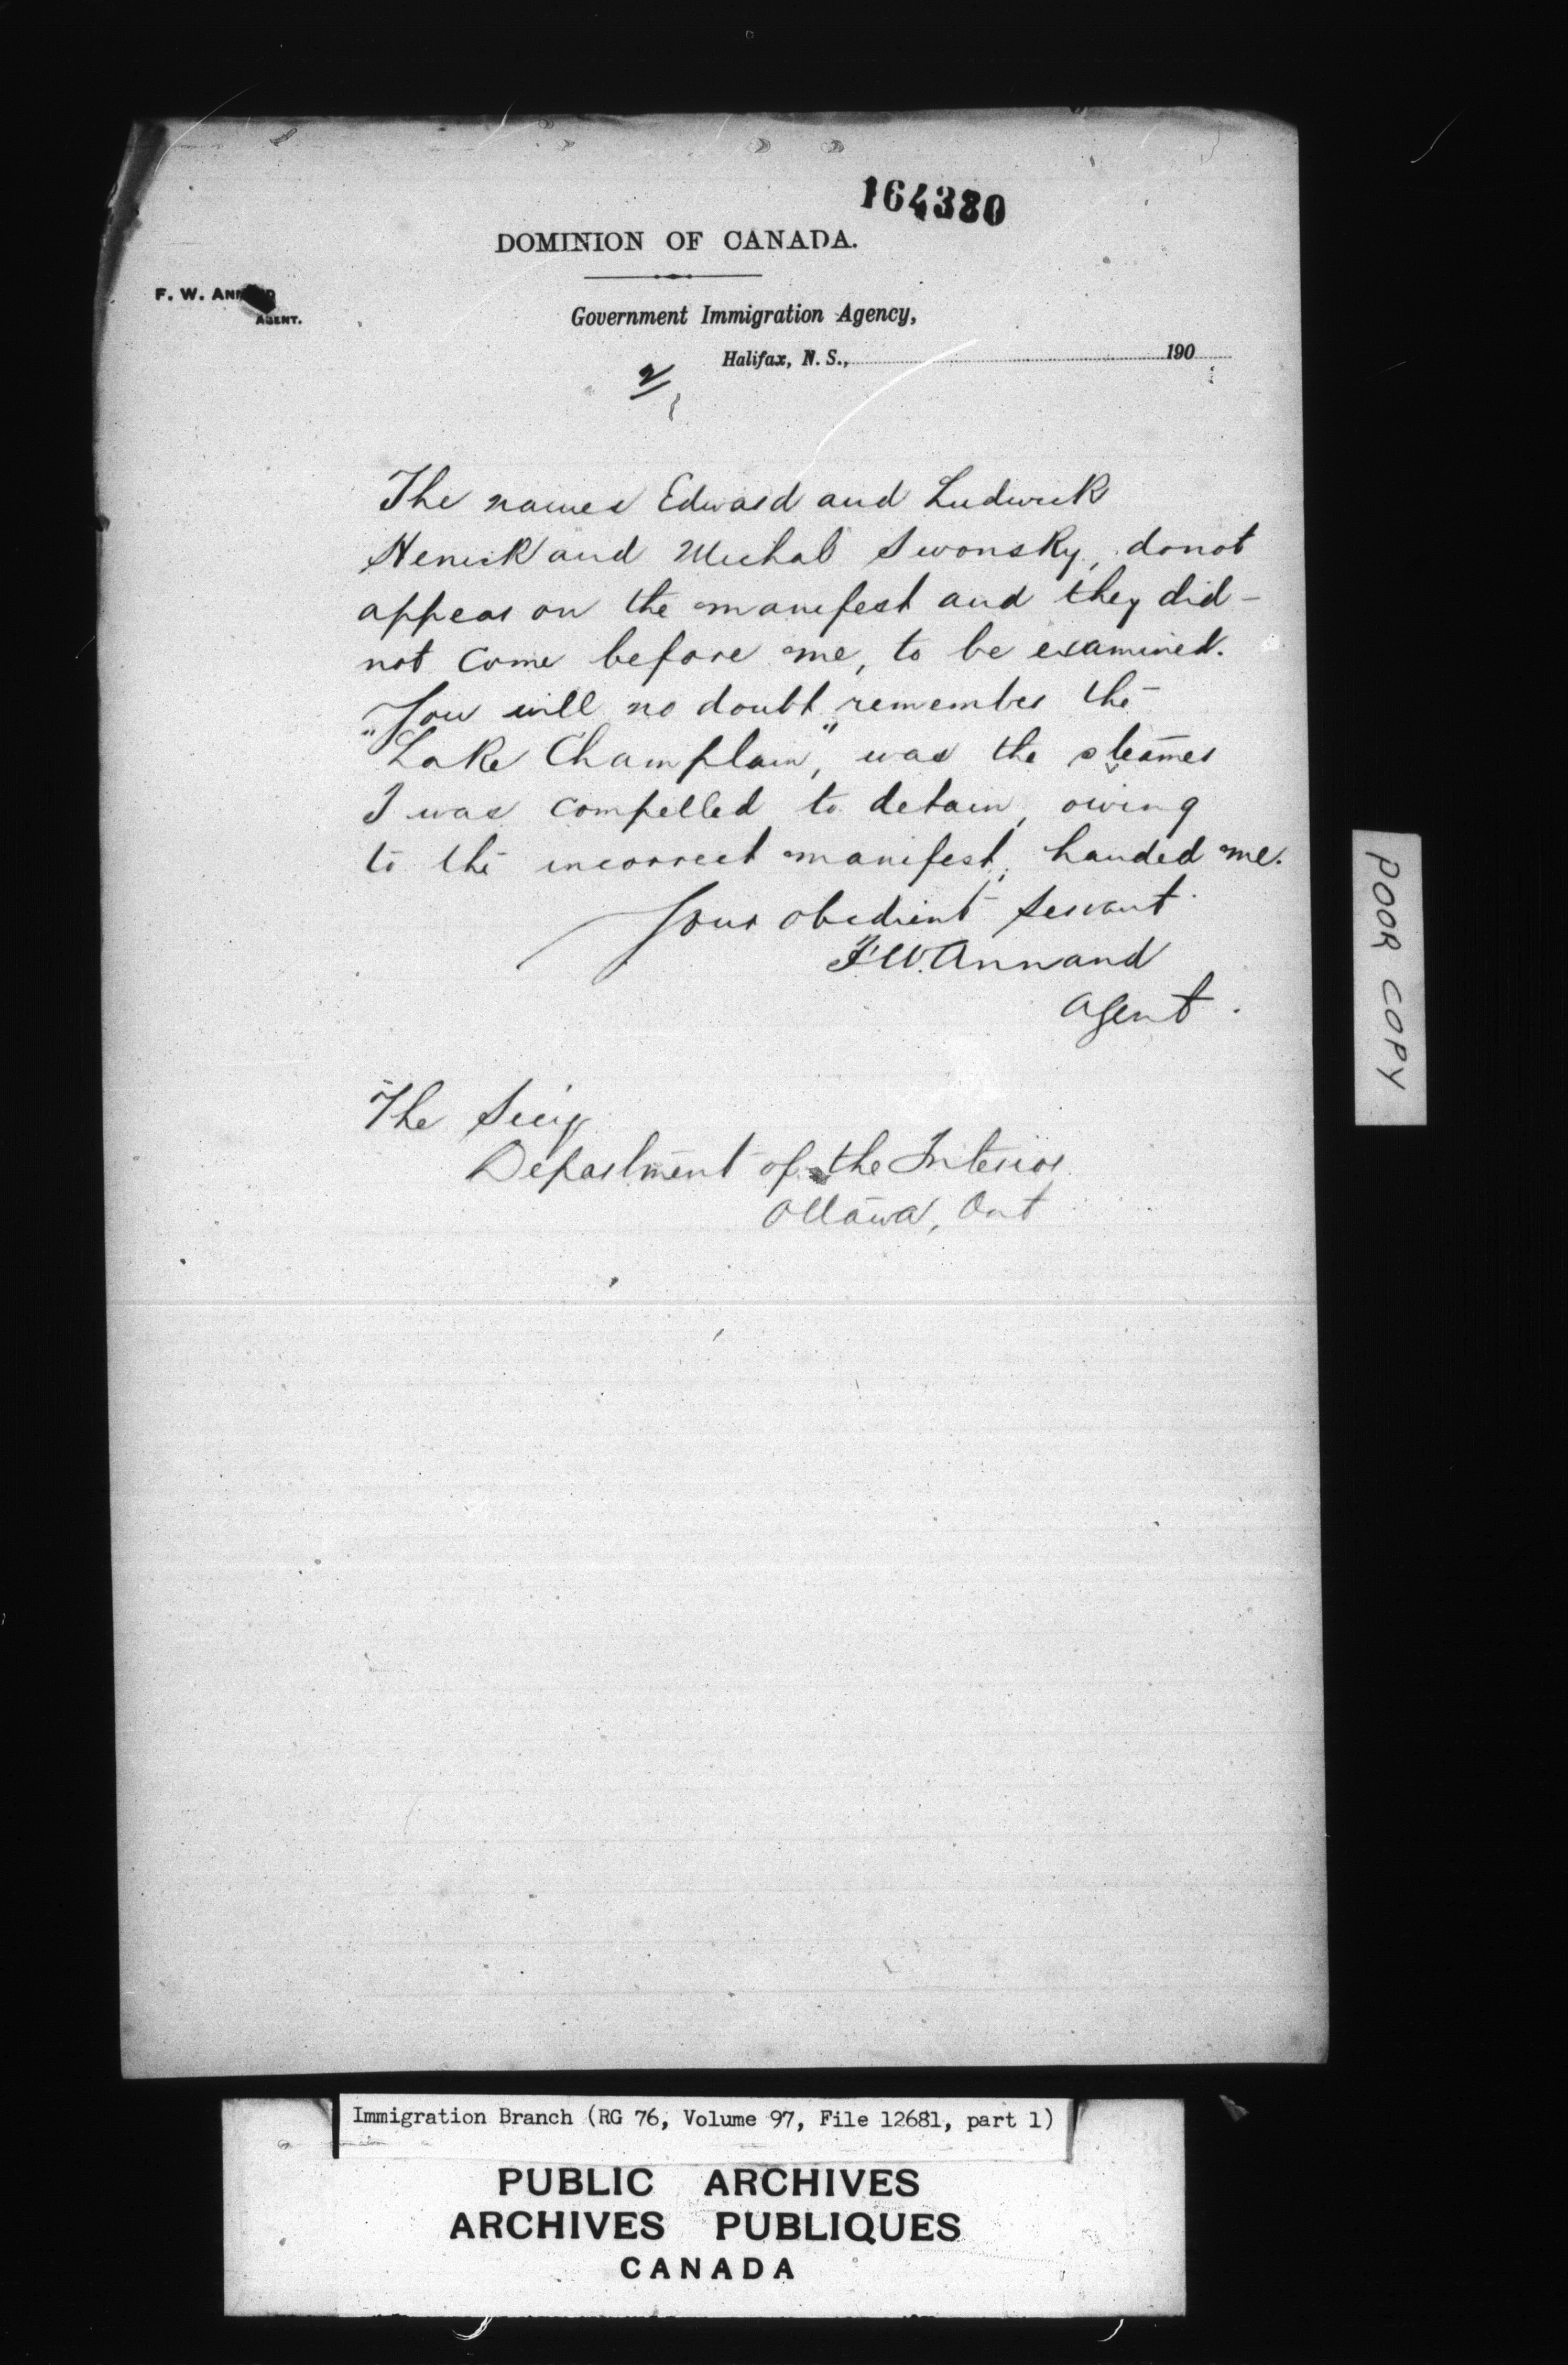 164380
DOMINION OF CANADA.
F. W. ANNAND
AGENT.
Government Immigration Agency,
Halifax, N. S., 190
2
The names Edward and Ludwick
Henick and Michal Swonsky, do not
appear on the manifest and they did-
not come before me, to be examined.
You will no doubt remember the
"Lake Champlain", was the steamer
I was compelled to detain, owing
to the incorrect manifest, handed me.
Your obedient servant
F.W. Annand
Agent.
The Secy
Department of the Interior
Ottawa, Ont
POOR COPY
Immigration Branch (RG 76, Volume 97, File 12681, part 1)
PUBLIC ARCHIVES
ARCHIVES PUBLIQUES
CANADA